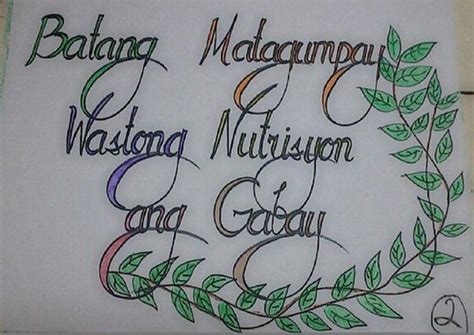 Batang Matagumpay
Wastong Nutrisyon
ang Gabay
2